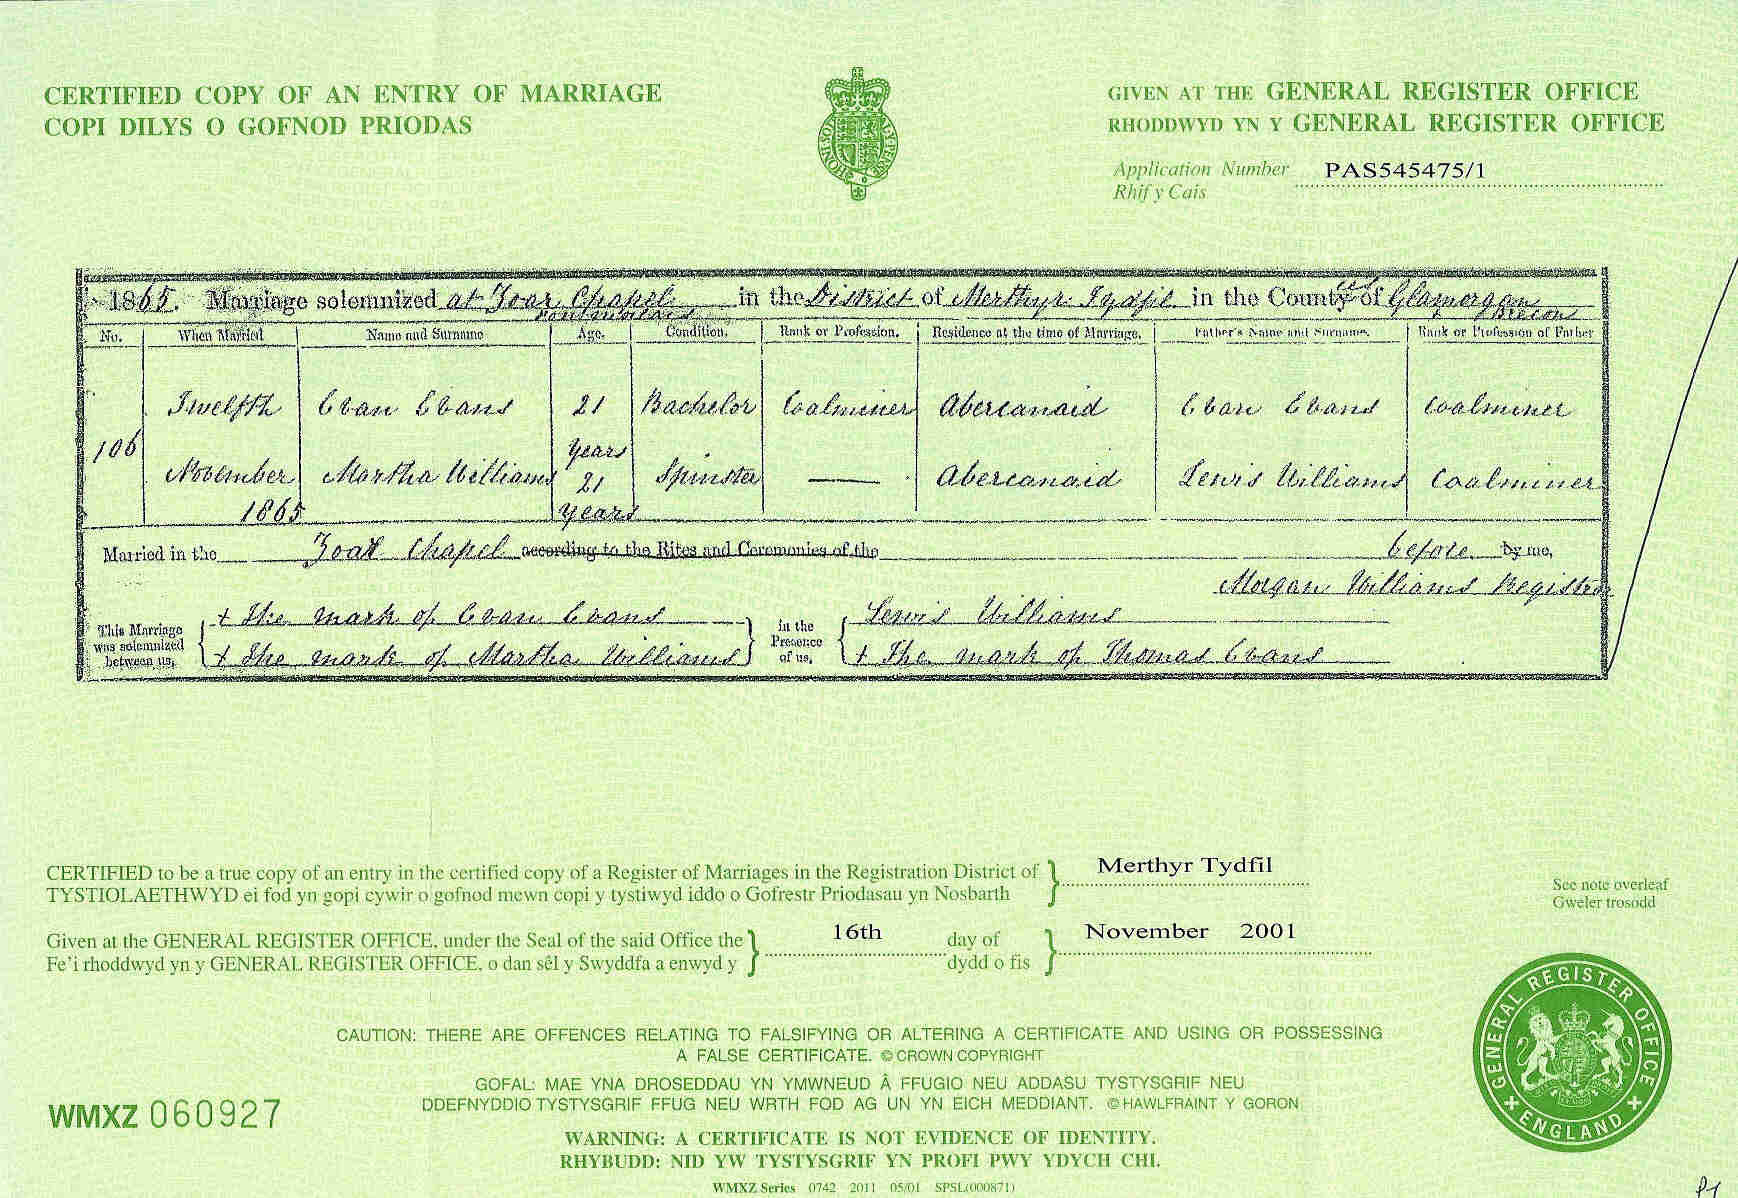 CERTIFIED COPY OF AN ENTRY OF MARRIAGE
COPI DILYS O GOFNOD PRIODAS
GIVEN AT THE GENERAL REGISTER OFFICE
RHODDWYD YN Y GENERAL REGISTER OFFICE
Application Number PAS545475/1
Rhif y Cais
1865. Marriage solemnized at Zoar Chapel in the District of Merthyr Tydfil in the Counties of Glamorgan
Brecon
No. When Married Name and Surname Age. Condition. Rank or Profession. Residence at the time of Marriage. Father's Name and Surname. Rank or Profession of Father
Twelfth Evan Evans 21 Bachelor Coalminer Abercanaid Evan Evans Coalminer
106 years
November Martha Williams 21 Spinster — Abercanaid Lewis Williams Coalminer
1865 years
Married in the Zoar Chapel according to the Rites and Ceremonies of the before by me,
Morgan Williams Registrar
This Marriage was solemnized between us, + The mark of Evan Evans
+ The mark of Martha Williams
in the Presence of us, Lewis Williams
+ The mark of Thomas Evans
CERTIFIED to be a true copy of an entry in the certified copy of a Register of Marriages in the Registration District of Merthyr Tydfil
TYSTIOLAETHWYD ei fod yn gopi cywir o gofnod mewn copi y tystiwyd iddo o Gofrestr Priodasau yn Nosbarth
See note overleaf
Gweler trosodd
Given at the GENERAL REGISTER OFFICE, under the Seal of the said Office the 16th day of November 2001
Fe'i rhoddwyd yn y GENERAL REGISTER OFFICE, o dan sêl y Swyddfa a enwyd y dydd o fis
CAUTION: THERE ARE OFFENCES RELATING TO FALSIFYING OR ALTERING A CERTIFICATE AND USING OR POSSESSING
A FALSE CERTIFICATE. © CROWN COPYRIGHT
GOFAL: MAE YNA DROSEDDAU YN YMWNEUD Â FFUGIO NEU ADDASU TYSTYSGRIF NEU
DDEFNYDDIO TYSTYSGRIF FFUG NEU WRTH FOD AG UN YN EICH MEDDIANT. © HAWLFRAINT Y GORON
WMXZ 060927
WARNING: A CERTIFICATE IS NOT EVIDENCE OF IDENTITY.
RHYBUDD: NID YW TYSTYSGRIF YN PROFI PWY YDYCH CHI.
WMXZ Series 0742 2011 05/01 SPSL(000871)
GENERAL REGISTER OFFICE
ENGLAND